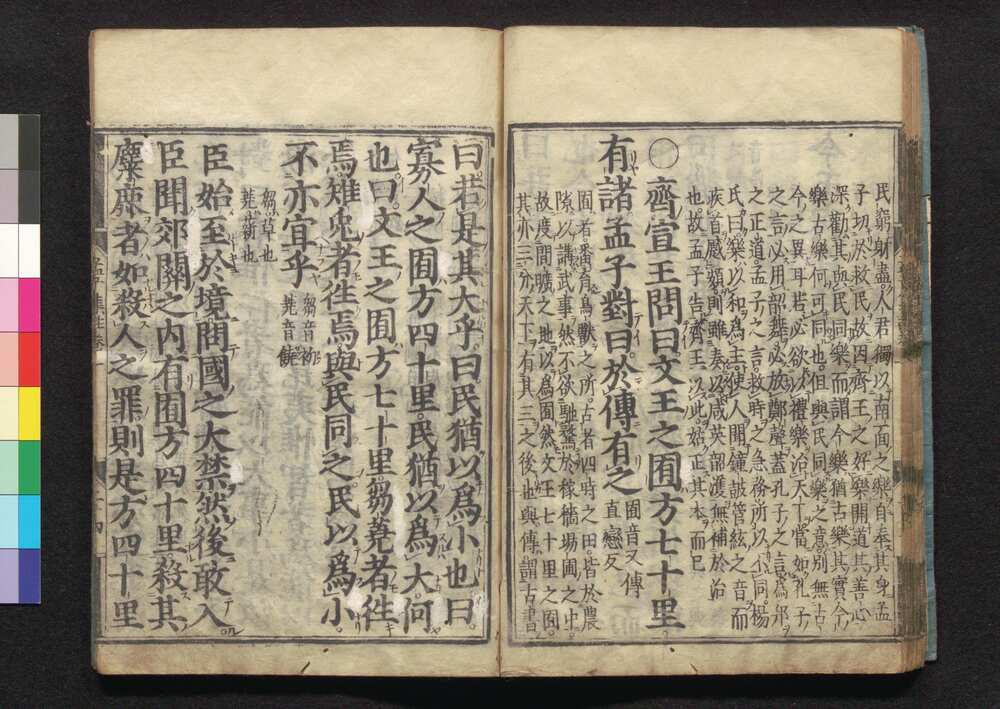 民窮財盡人君獨以南面之樂自奉其身孟
子切於救民故因齊王之好樂開道其善心
深勸其與民同樂而謂今樂猶古樂其實今
樂古樂何可同也但與民同樂之意則無古
今之異耳若必欲以禮樂治天下當如孔子
之言必用韶舞必放鄭聲蓋孔子之言爲邦
之正道孟子之言救時之急務所以不同楊
氏曰樂以和爲主使人聞鐘鼓管絃之音而
疾首蹙頞則雖奏以咸英韶濩無補於治
也故孟子告齊王以此姑正其本而已
○齊宣王問曰文王之囿方七十里
有諸孟子對曰於傳有之
囿音又傳
直戀反
囿者蕃育鳥獸之所古者四時之田皆於農
隙以講武事然不欲馳騖於稼穡場圃之中
故度閒曠之地以爲囿然文王七十里之囿
其亦三分天下有其二之後也與傳謂古書
曰若是其大乎曰民猶以爲小也曰
寡人之囿方四十里民猶以爲大何
也曰文王之囿方七十里芻蕘者往
焉雉兔者往焉與民同之民以爲小
不亦宜乎
芻音初
蕘音饒
芻草也
蕘薪也
臣始至於境問國之大禁然後敢入
臣聞郊關之内有囿方四十里殺其
麋鹿者如殺人之罪則是方四十里